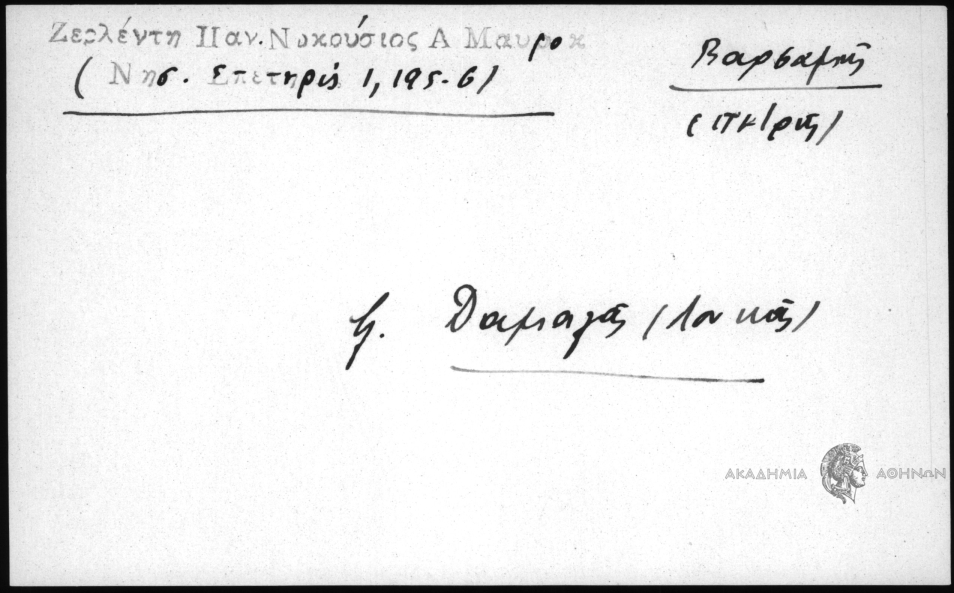 Ζερλέντη Παν. Νικούσιος Α Μαυροκ
( Νησ. Επετηρίς 1, 195-6)
Βαρσαμής
βλ. Δαμαλᾶς (Λουκᾶς)
ΑΚΑΔΗΜΙΑ ΑΘΗΝΩΝ